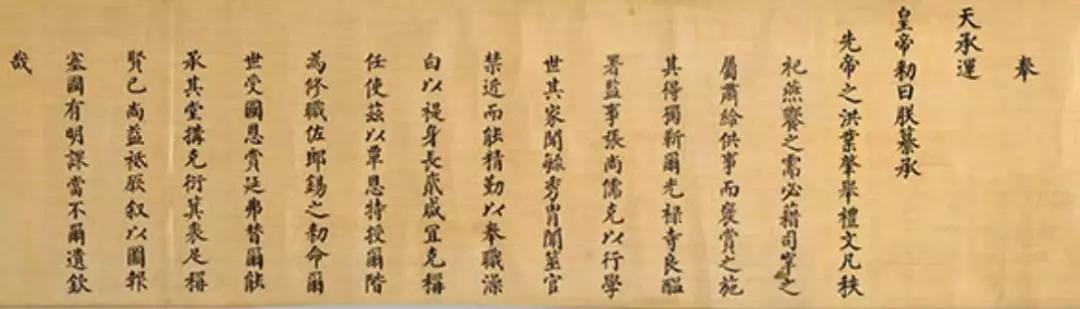 奉
天承運
皇帝勅曰朕纂承
先帝之洪業肇舉禮文凡秩
祀燕饗之需必藉司宰之
屬肅給供事而褒賞之施
其得獨靳爾光祿寺良醞
署監事張尚儒克以行學
世其家聞毓秀胄闈筮官
禁近而能精勤以奉職澡
白以禔身長貳咸宜克稱
任使茲以覃恩特授爾階
為修職佐郎錫之勅命爾
世受國恩賞延弗替爾能
承其堂搆克衍箕裘足稱
賢已尚益祗厥叙以圖報
塞國有明課當不爾遺欽
哉